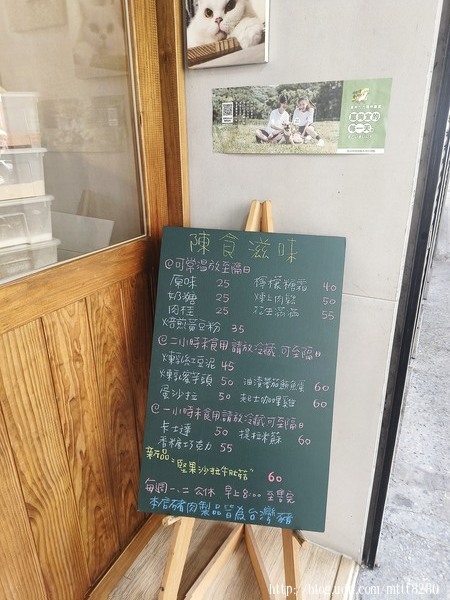 陳食滋味
@可常溫放至隔日
原味 25 檸檬糖霜 40
奶糖 25 煉上肉鬆 50
肉桂 25 花生蒜香 55
焙煎黃豆粉 35
@二小時未食用請放冷藏可至隔日
爆餡紅豆泥 45
爆餡芋頭 50 油漬番茄鮪魚蛋 60
蛋沙拉 50 起士咖哩雞 60
@一小時未食用請放冷藏可至隔日
卡士達 50 提拉米蘇 60
香榭巧克力 55
新品:"堅果沙拉牛肚菇" 60
每週一、二公休 早上8:00至售完
本店豬肉製品皆為台灣豬
http://blog.udn.com/mtlf8280